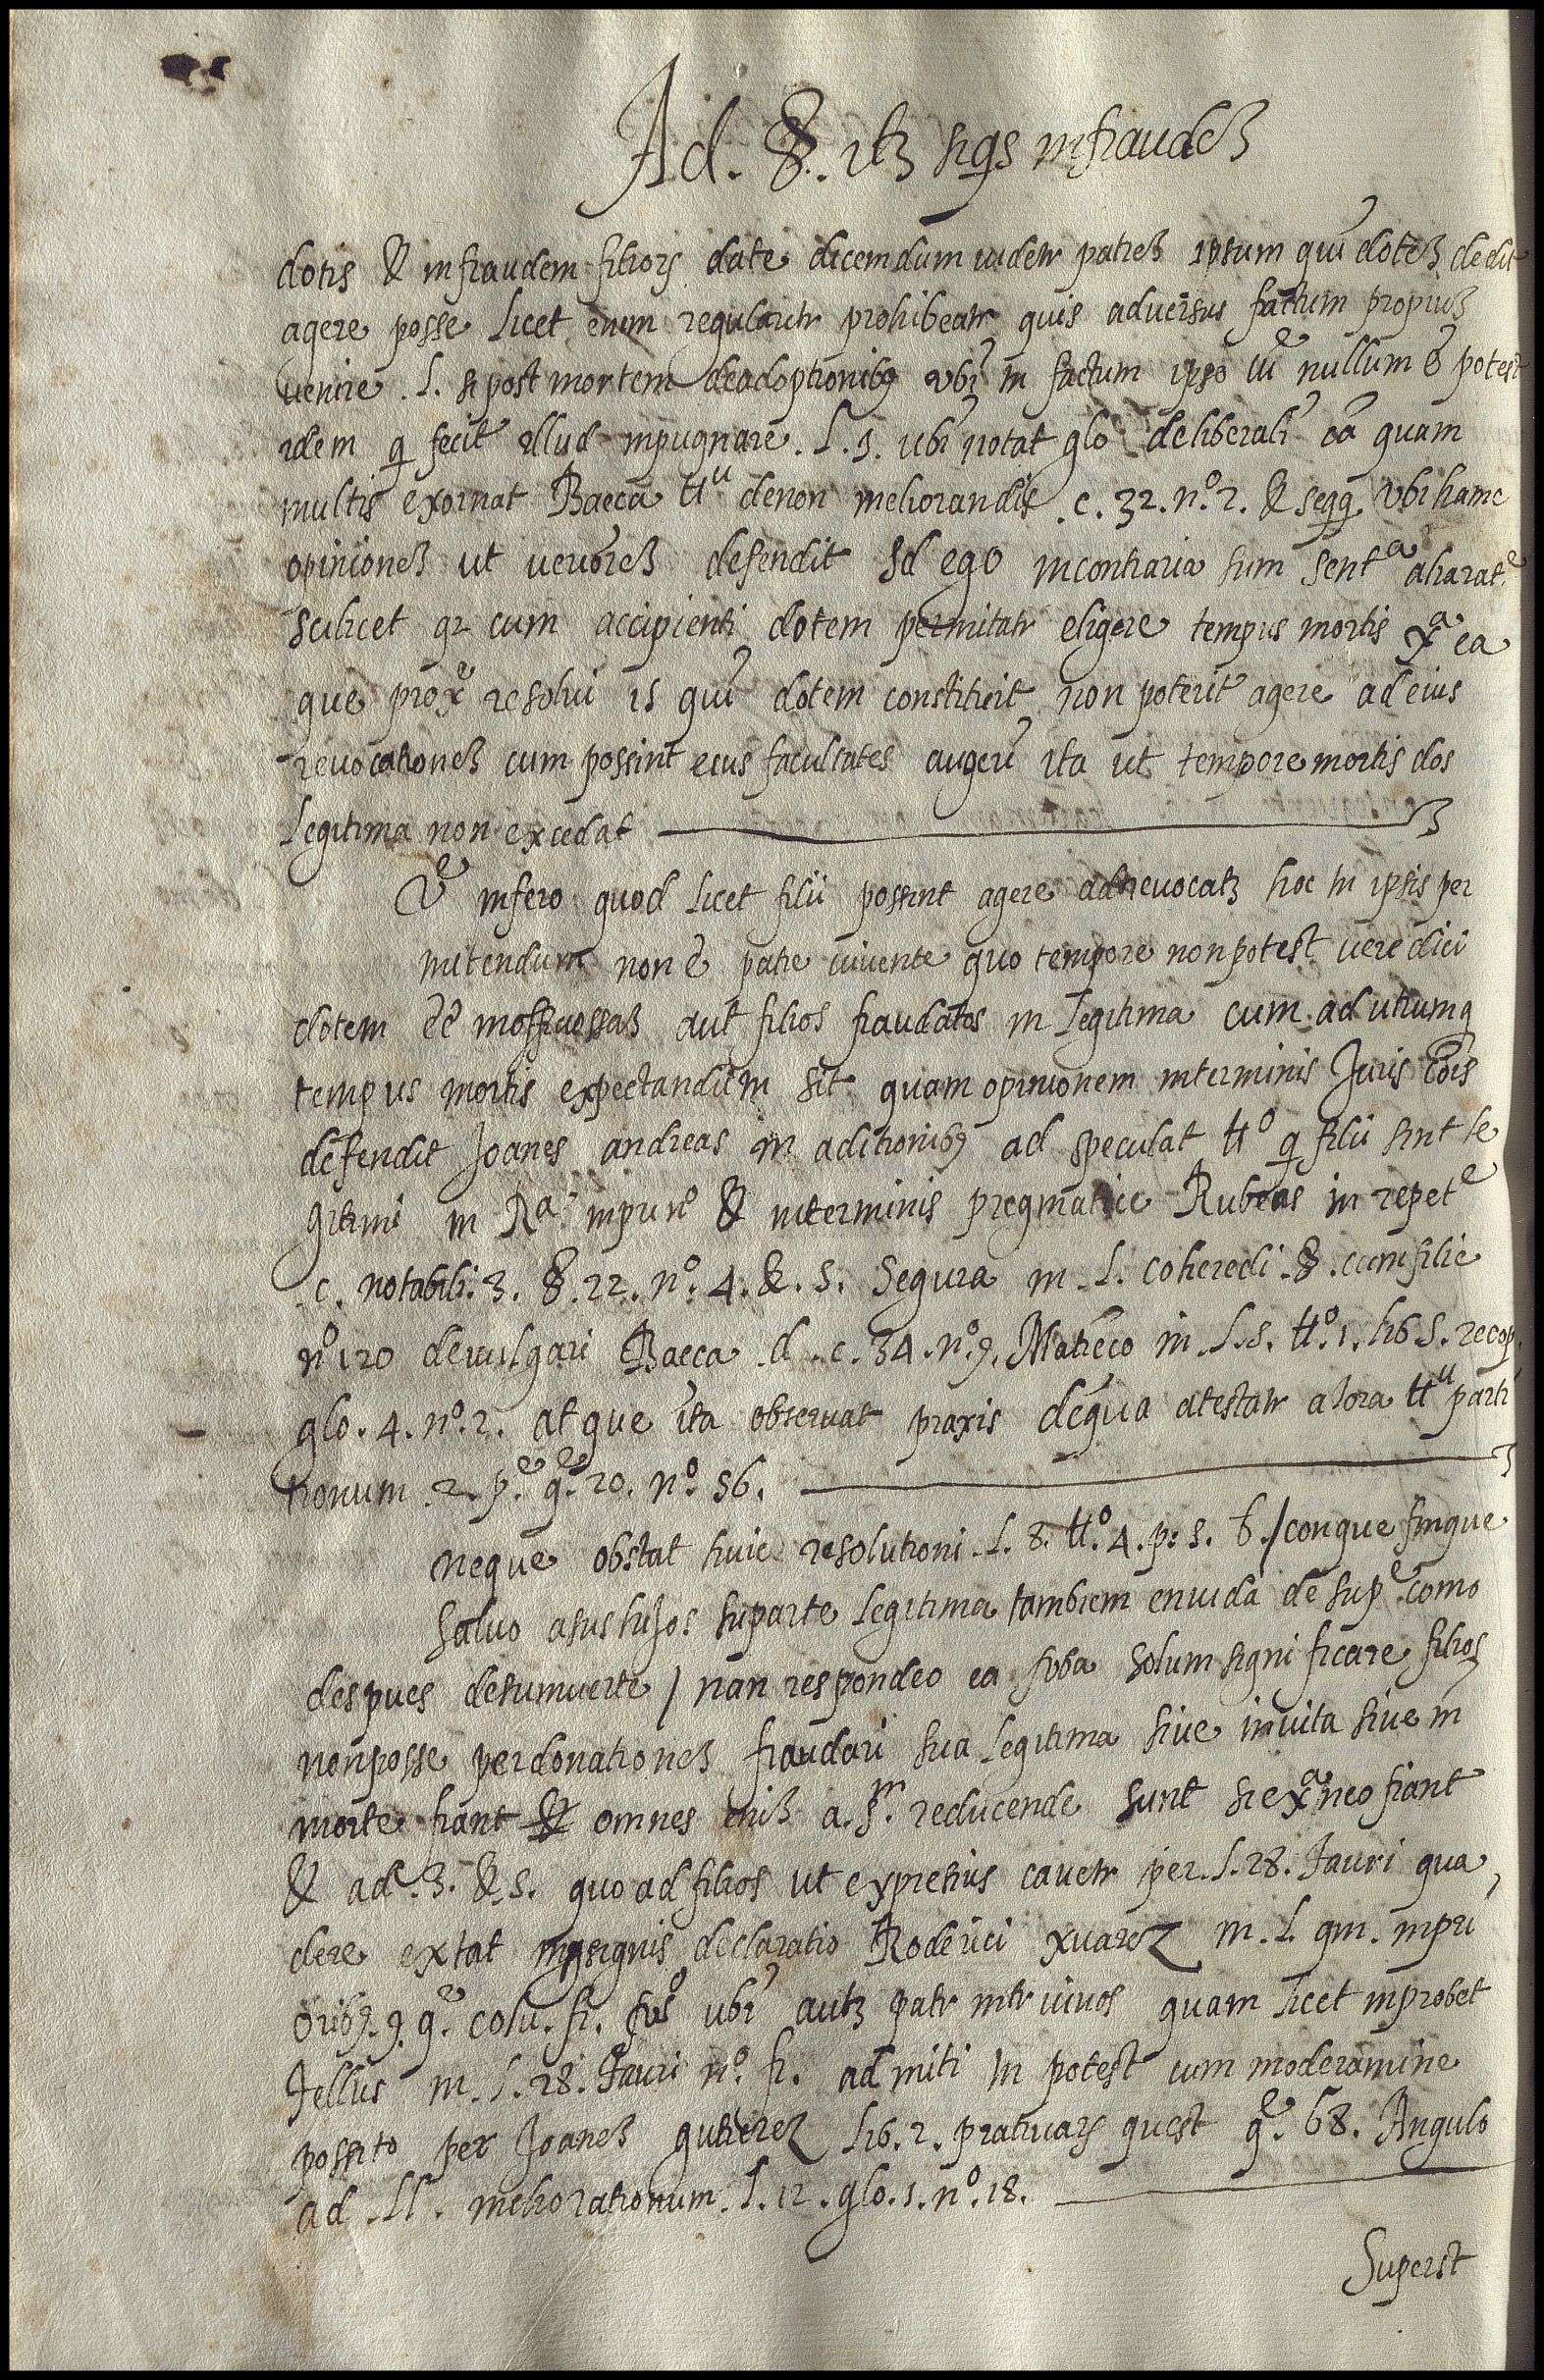 Ad. §. itʒ siqs infraudeʒ
dotis & infraudem filiorʒ date dicemdum uidetr patreʒ ipsum qui doteʒ dedit
agere posse licet enim regularitr prohibeatr quis adversus factum propriuʒ
uenire . l. si post mortem de adoptionibꝯ ubi tn factum ipso iure nullum ē potest
idem q fecit illud inpugnare . l. 1. ubi notat glo de liberali cā quam
multis exornat Baeca ttu denon meliorandis . c. 32. nº. 2. & seqq. ubi hanc
opinioneʒ ut ueriōreʒ defendit sd ego incontraria sum senta aliarate
scilicet qz cum accipienti dotem permitatr eligere tempus mortis xa ea
que proxe resolui is qui dotem constituit non poterit agere ad eius
reuocationeʒ cum possint eius facultates augeri ita ut tempore mortis dos
legitima non excedat
Ve infero quod licet filii possint agere ad reuocatʒ hoc tn ipsis per
mitendum non ē patre uiuente quo tempore non potest uere dici
dotem eē inofficiossaʒ aut filios fraudatos in legitima cum ad utrumq
tempus mortis expectandum sit quam opinionem interminis Juris cōis
defendit Joanes andreas in aditionibꝯ ad speculat ttº q filii sint le
gitimi in Ra. inpu nº & interminis pregmatice Rubeas in repete
. c. notabili. 3. §. 22. nº. 4. &. 5. Segura in . l. coheredi . §. cum filie
nº 120 de uulgari Baeca . d . c . 34 . nº. 9. Matieco in . l. 5. ttº. 1. lib 5. recop.
glo. 4. nº. 2. atque ita obseruat praxis dequa atestatr aiora ttu parti
tionum . 2. pe. qe. 20. nº. 56.
neque obstat huic resolutioni . l. 8. ttº. 4. p. 5. b. / con que finque
saluo asus hijos suparte legitima tambiem en uida de supe como
despues desumuerte / nan respondeo ea uba solum significare filios
non posse per donationeʒ fraudari sua legitima siue in uita siue in
morte fiant omnes eniʒ a. 5m. reducende sunt si exaneo fiant
& ad . 3. & . 5. quo ad filios ut expresius cauetr per . l. 28. Tauri qua
dere extat insignis declaratio Roderici xuarez in . l. qm. inpri
oribꝯ. 9. qe. colu. fi. uso ubi autʒ patr intr uiuos quam licet inprobet
Tellus in . l. 28. Tauri nº. fi. admiti tn potest cum moderamine
possito per Joaneʒ gutierez lib. 2. praticarʒ quest qe. 68. Angulo
ad . ll. meliorationum . l. 12. glo. 1. nº. 18.
Superst